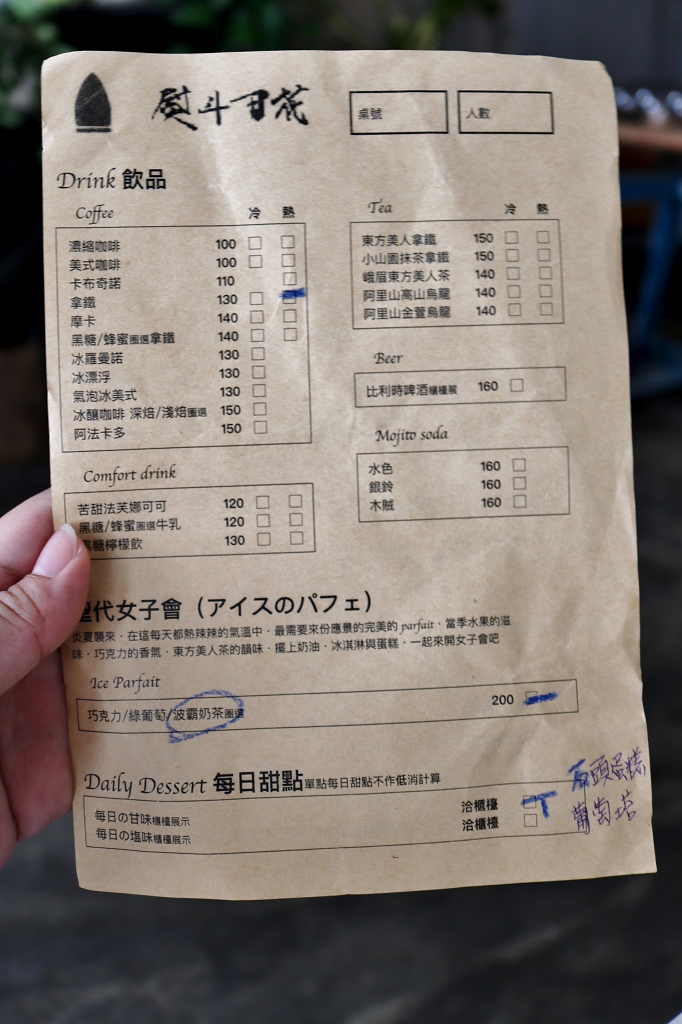 熨斗目花
桌號
人數
Drink 飲品
Coffee 冷 熱
濃縮咖啡 100
美式咖啡 100
卡布奇諾 110
拿鐵 130
摩卡 140
黑糖/蜂蜜圈選拿鐵 140
冰羅曼諾 130
冰漂浮 130
氣泡冰美式 130
冰釀咖啡 深焙/淺焙圈選 150
阿法卡多 150
Comfort drink
苦甜法芙娜可可 120
黑糖/蜂蜜圈選牛乳 120
糖檸檬飲 130
Tea 冷 熱
東方美人拿鐵 150
小山園抹茶拿鐵 150
峨眉東方美人茶 140
阿里山高山烏龍 140
阿里山金萱烏龍 140
Beer
比利時啤酒櫃檯展 160
Mojito soda
水色 160
銀鈴 160
木賊 160
聖代女子會（アイスのパフェ）
炎夏襲來，在這每天都熱辣辣的氣溫中，最需要來份應景的完美的 parfait，當季水果的滋
味，巧克力的香氣，東方美人茶的韻味，擺上奶油，冰淇淋與蛋糕，一起來開女子會吧
Ice Parfait
巧克力/綠葡萄/波霸奶茶圈選 200
Daily Dessert 每日甜點單點每日甜點不作低消計算
每日の甘味櫃檯展示 洽櫃檯
每日の塩味櫃檯展示 洽櫃檯
石頭蛋糕
葡萄塔